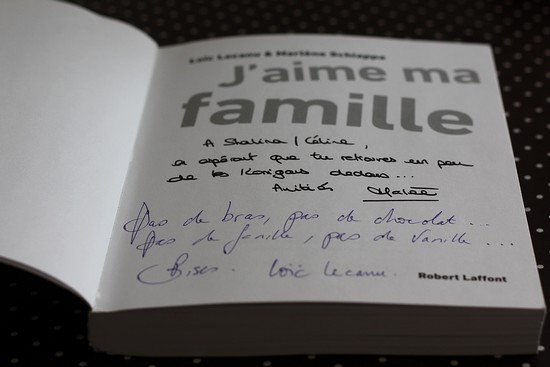 Loïc Lecanu & Marlène Schiappa
J'aime ma
famille
A Stalina / Céline,
en espérant que tu retrouves un peu
de tes Korigans dedans...
Amitiés
Pas de bras, pas de chocolat...
Pas de famille, pas de vanille...
Bises. Loïc Lecanu.
Robert Laffont